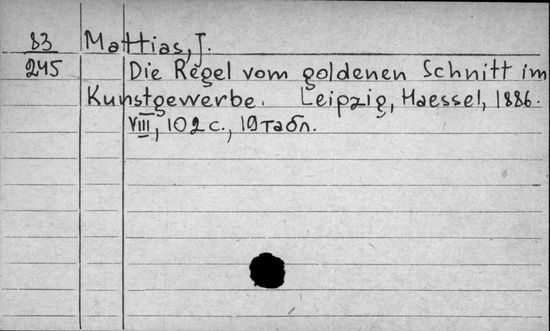 83 Matthias, J.
245 Die Regel vom goldenen Schnitt im
Kunstgewerbe. Leipzig, Haessel, 1886.
VIII, 102 с., 19 табл.